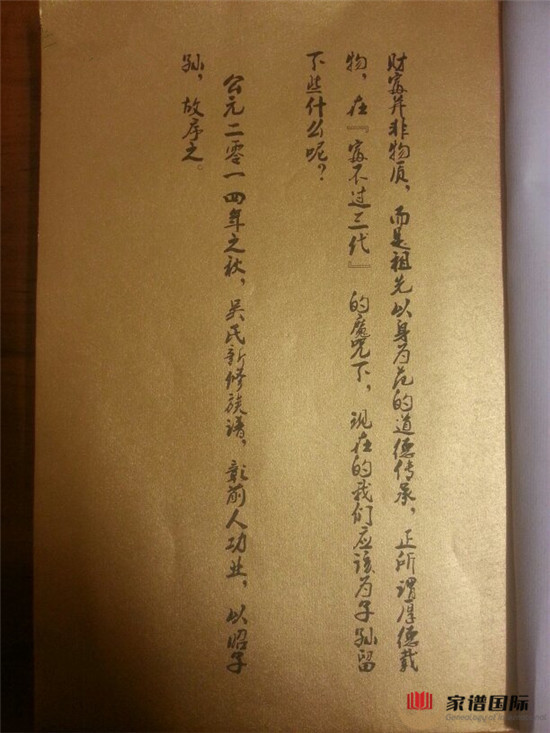 财富并非物质，而是祖先以身为范的道德传承，正所谓厚德载
物，在『富不过三代』的魔咒下，现在的我们应该为子孙留
下些什么呢？
公元二零一四年之秋，吴氏新修族谱，彰前人功业，以昭子
孙，故序之。
家谱国际
Genealogy of International